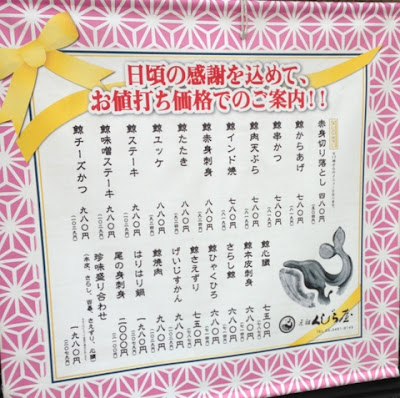 日頃の感謝を込めて、
お値打ち価格でのご案内!!
赤身切り落とし 四八〇円
鯨からあげ 七八〇円
鯨串かつ 七八〇円
鯨肉天ぷら 七八〇円
鯨インド焼 七八〇円
鯨赤身刺身 八八〇円
鯨たたき 八八〇円
鯨ユッケ 八八〇円
鯨ステーキ 九八〇円
鯨味噌ステーキ 九八〇円
鯨チーズかつ 九八〇円
鯨心臓 七五〇円
鯨本皮刺身 六八〇円
さらし鯨 六八〇円
鯨ひゃくひろ 六八〇円
鯨さえずり 七五〇円
げいじすかん 九八〇円
鯨焼肉 九八〇円
はりはり鍋 九八〇円
尾の身刺身 二〇〇〇円
珍味盛り合わせ 一九八〇円
元祖くじら屋